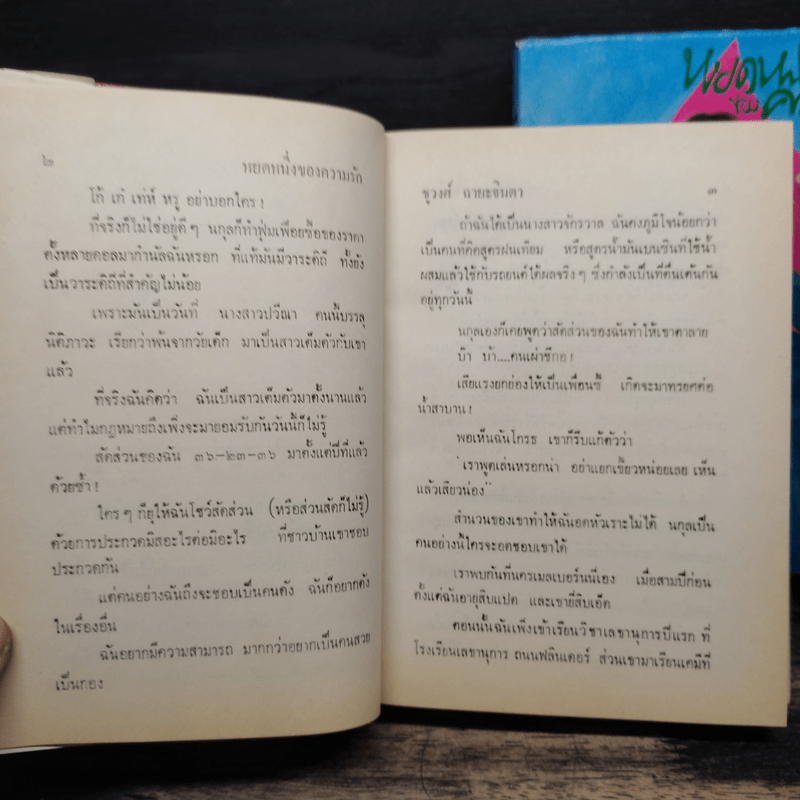 หยดหนึ่ง
ของ
๒ หยดหนึ่งของความรัก
โก้ เก๋ เท่ห์ หรู อย่าบอกใคร!
ที่จริงก็ไม่ใช่อยู่ดี ๆ นกุลก็ทำฟุ่มเฟือยซื้อของราคา
ตั้งหลายดอลมากำนัลฉันหรอก ที่แท้มันมีวาระดิถี ทั้งยัง
เป็นวาระดิถีที่สำคัญไม่น้อย
เพราะมันเป็นวันที่ นางสาวปวีณา คนนี้บรรลุ
นิติภาวะ เรียกว่าพ้นจากวัยเด็ก มาเป็นสาวเต็มตัวกับเขา
แล้ว
ที่จริงฉันคิดว่า ฉันเป็นสาวเต็มตัวมาตั้งนานแล้ว
แต่ทำไมกฎหมายถึงเพิ่งจะมายอมรับกันวันนี้ก็ไม่รู้
สัดส่วนของฉัน ๓๖–๒๓–๓๖ มาตั้งแต่ปีที่แล้ว
ด้วยซ้ำ!
ใคร ๆ ก็ยุให้ฉันโชว์สัดส่วน (หรือส่วนสัดก็ไม่รู้)
ด้วยการประกวดมิสอะไรต่อมิอะไร ที่ชาวบ้านเขาชอบ
ประกวดกัน
แต่คนอย่างฉันถึงจะชอบเป็นคนดัง ฉันก็อยากดัง
ในเรื่องอื่น
ฉันอยากมีความสามารถ มากกว่าอยากเป็นคนสวย
เป็นกอง
ชูวงศ์ ฉายะจินดา ๓
ถ้าฉันได้เป็นนางสาวจักรวาล ฉันคงภูมิใจน้อยกว่า
เป็นคนที่คิดสูตรฝนเทียม หรือสูตรน้ำมันเบนซินที่ใช้น้ำ
ผสมแล้วใช้กับรถยนต์ได้ผลจริง ๆ ซึ่งกำลังเป็นที่ตื่นเต้นกัน
อยู่ทุกวันนี้
นกุลเองก็เคยพูดว่าสัดส่วนของฉันทำให้เขาตาลาย
บ๊า บ้า....คนเผ่าซีกอ!
เสียแรงยกย่องให้เป็นเพื่อนซี้ เกิดจะมาทรยศต่อ
น้ำสาบาน!
พอเห็นฉันโกรธ เขาก็รีบแก้ตัวว่า
“เราพูดเล่นหรอกน่า อย่าแยกเขี้ยวหน่อยเลย เห็น
แล้วเสียวน่อง”
สำนวนของเขาทำให้ฉันอดหัวเราะไม่ได้ นกุลเป็น
คนอย่างนี้ใครจะอดชอบเขาได้
เราพบกันที่นครเมลเบอร์นนี่เอง เมื่อสามปีก่อน
ตั้งแต่ฉันอายุสิบแปด และเขายี่สิบเอ็ด
ตอนนั้นฉันเพิ่งเข้าเรียนวิชาเลขานุการปีแรก ที่
โรงเรียนเลขานุการ ถนนฟลินเดอร์ ส่วนเขามาเรียนเคมีที่